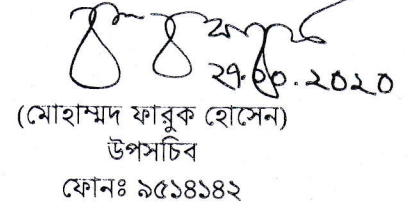 ২৭.১০.২০২০
(মোহাম্মদ ফারুক হোসেন)
উপসচিব
ফোনঃ ৯৫১৪১৪২